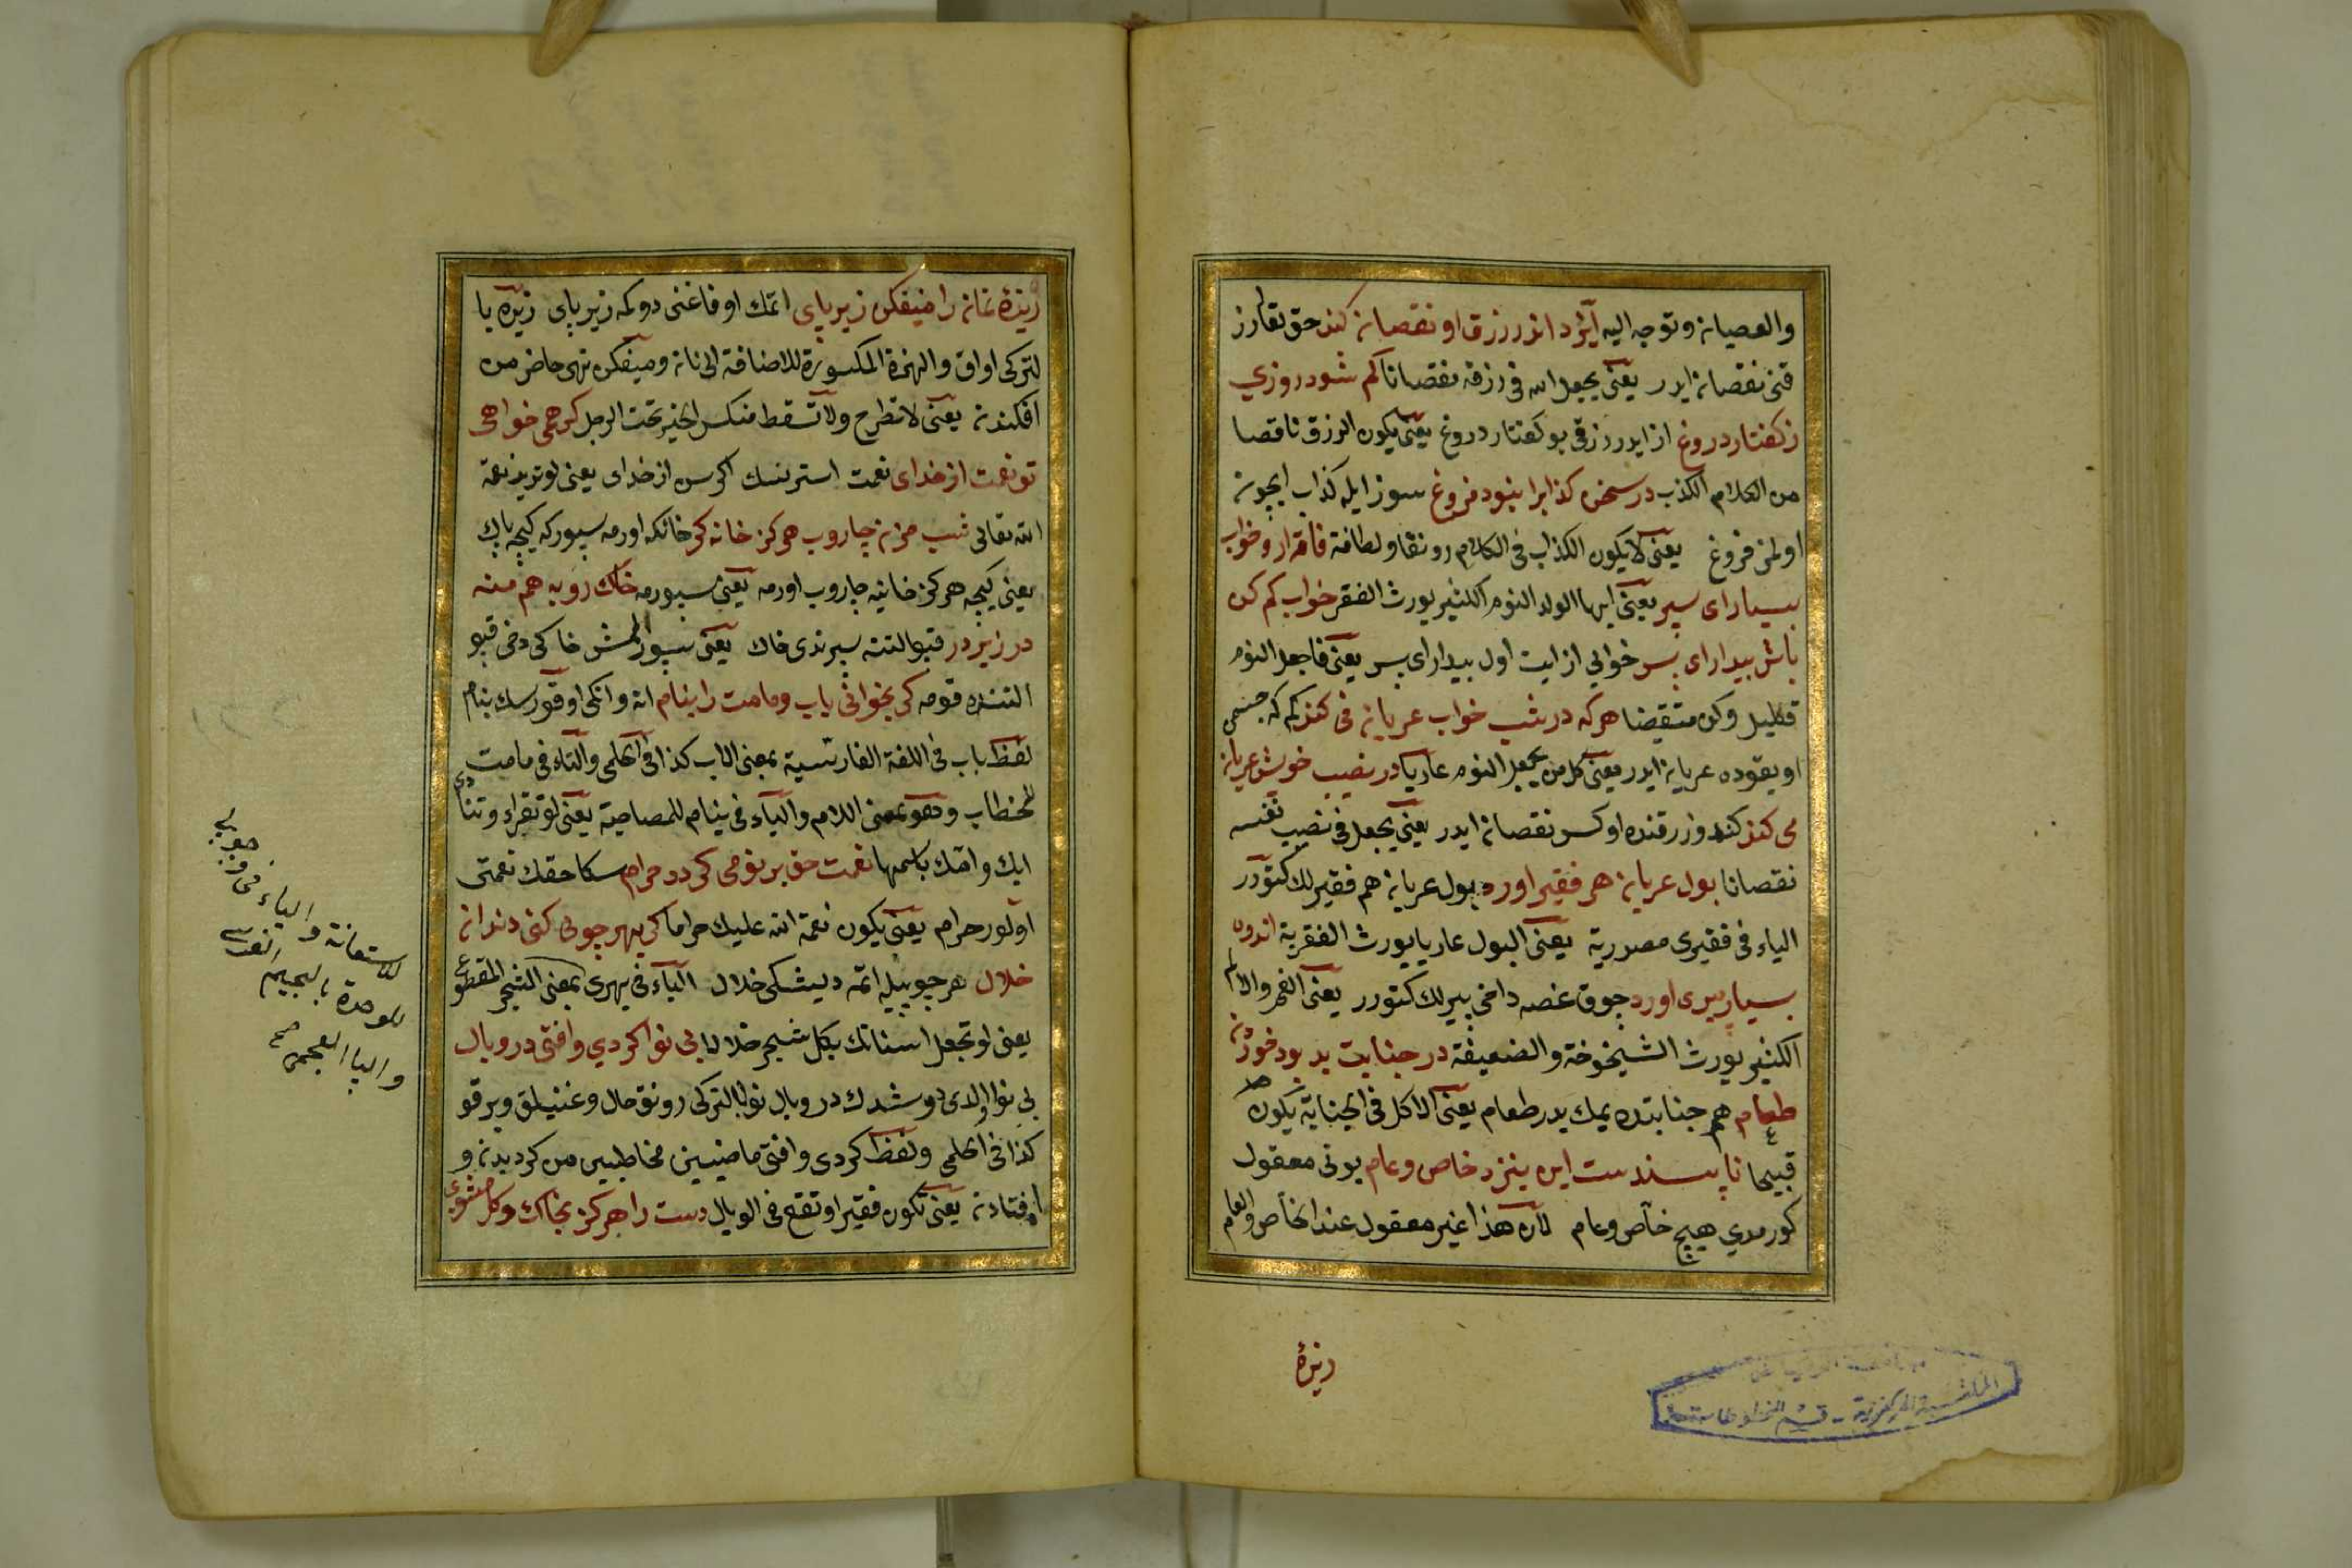 والعصیان وتوجه الیه ایزد اندر رزق او نقصان کند حق تعالی رز
قنی نقصان ایدر یعنی یجعل الله فی رزقه نقصانا کم شود روزی
ز کفتار دروغ از ایدر رزقی بو کفتار دروغ یعنی یکون الرزق ناقصا
من الکلام الکذب در سخن کذابرا نبود فروغ سوز ایله کذاب ایچون
اولمز فروغ یعنی لا یکون الکذاب فی الکلام رونقا ولطافة فاقه ارد خواب
بسیار ای سپر یعنی ایها الولد النوم الکثیر یورث الفقر خواب کم کن
باش بیدار ای پسر خوابی از ایت اول بیدار ای پسر یعنی فاجعل النوم
قلیل وکن متیقضا هرکه در شب خواب عریان می کند کم که جسمی
اویقوده عریان ایدر یعنی کل من یجعل النوم عاریا در نصیب خویش عریان
می کند کندو رزقنده اوکس نقصان ایدر یعنی یجعل فی نصیب نفسه
نقصانا بول عریان هم فقیر اورد بول عریان هم فقیرلك کتورر
الیاء فی فقیری مصدریة یعنی البول عاریا یورث الفقریة اندوه
بسیار پیری اورد چوق غصه دخی پیرلك کتورر یعنی الغم والالم
الکثیر یورث الشیخوخة والضعیفة در جنابت بد بود خوردن
طعام هم جنابتده یمك بدر طعام یعنی الاکل فی الجنایة یکون
قبیحا ناپسندست این بنزد خاص وعام بونی معقول
کورمدی هیچ خاص وعام لان هذا غیر معقول عند الخاص والعام
ریزۀ
المكتبة المركزية - قسم المخطوطات
ریزۀ نانرا میفکن زیر پای اتمك اوفاغنی دوکمه زیر پای ریزه یا
لترکی اواق والهمزة المکسورة للاضافة الی نان ومیفکن نهی حاضر من
افکندن یعنی لا تطرح ولا تسقط منکسر الخبز تحت الرجل کر همی خواهی
تو نعمت از خدای نعمت استرنسك اکر سن از خدای یعنی لو ترید نعمة
الله تعالی شب مزن جاروب هرکز خانه کر خانکه اورمه سپورکه کیجه پاك
یعنی کیجه هرکز خانیه جاروب اورمه یعنی سپورمه خاك روبه هم منه
در زیر در قپو التنه سپرندی خاك یعنی سپورلمش خاکی دخی قپو
التنده قومه کر بخوانی باب ومامت را بنام انه واتکی اوقورسك بنام
لفظ باب فی اللغة الفارسیة بمعنی الاب کذا فی الحلمی والتاء فی مامت
للخطاب وهو بمعنی اللام والباء فی بنام للمصاحبة یعنی لو تقراء وتنادی
ابك وامك باسمها نعمت حق بر تو می کردد حرام سکا حقك نعمتی
اولور حرام یعنی یکون نعمة الله علیك حراما کر بهر چوبی کنی دندان
خلال هر چوبیله اتمه دیشکی خلال الیاء فی بهری بمعنی الشجر المقطوع
یعنی لو تجعل اسنانك بکل شجر خلالا بی نوا کردی وافتی در وبال
بی نوا اولدی دوشدك در وبال نوا بالترکی رونق حال وغنیلق وبرقو
کذا فی الحلمی ولفظ کردی وافتی ماضیین مخاطبین من کردیدن و
افتادن یعنی تکون فقیرا وتقع فی الوبال دست را هرکز بخاك وکل مشوی
للاستعانة والیاء فی چوبی
للوحدة بالجیم الفارسی
والباء العجمی صح